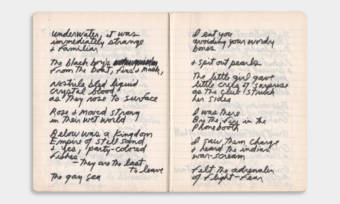 underwater, it was
immediately strange
& familiar
The black boy's
from the boat, fins & mask,
Nostrils bled liquid
crystal blood
as they rose to surface
Rose & moved strong
in their wet world
Below was a Kingdom
Empire of still sand
& yes, party-colored
fishes
- They are the last
to leave
The gay sea
I eat you
avoiding your wordy
bones
& spit out pearls
The little girl gave
little cries of surprise
as the club struck
her sides
I was there
By the fire in the
Phonebooth
I saw them charge
& heard the indian
war-scream
felt the adrenalin
of flight-fear